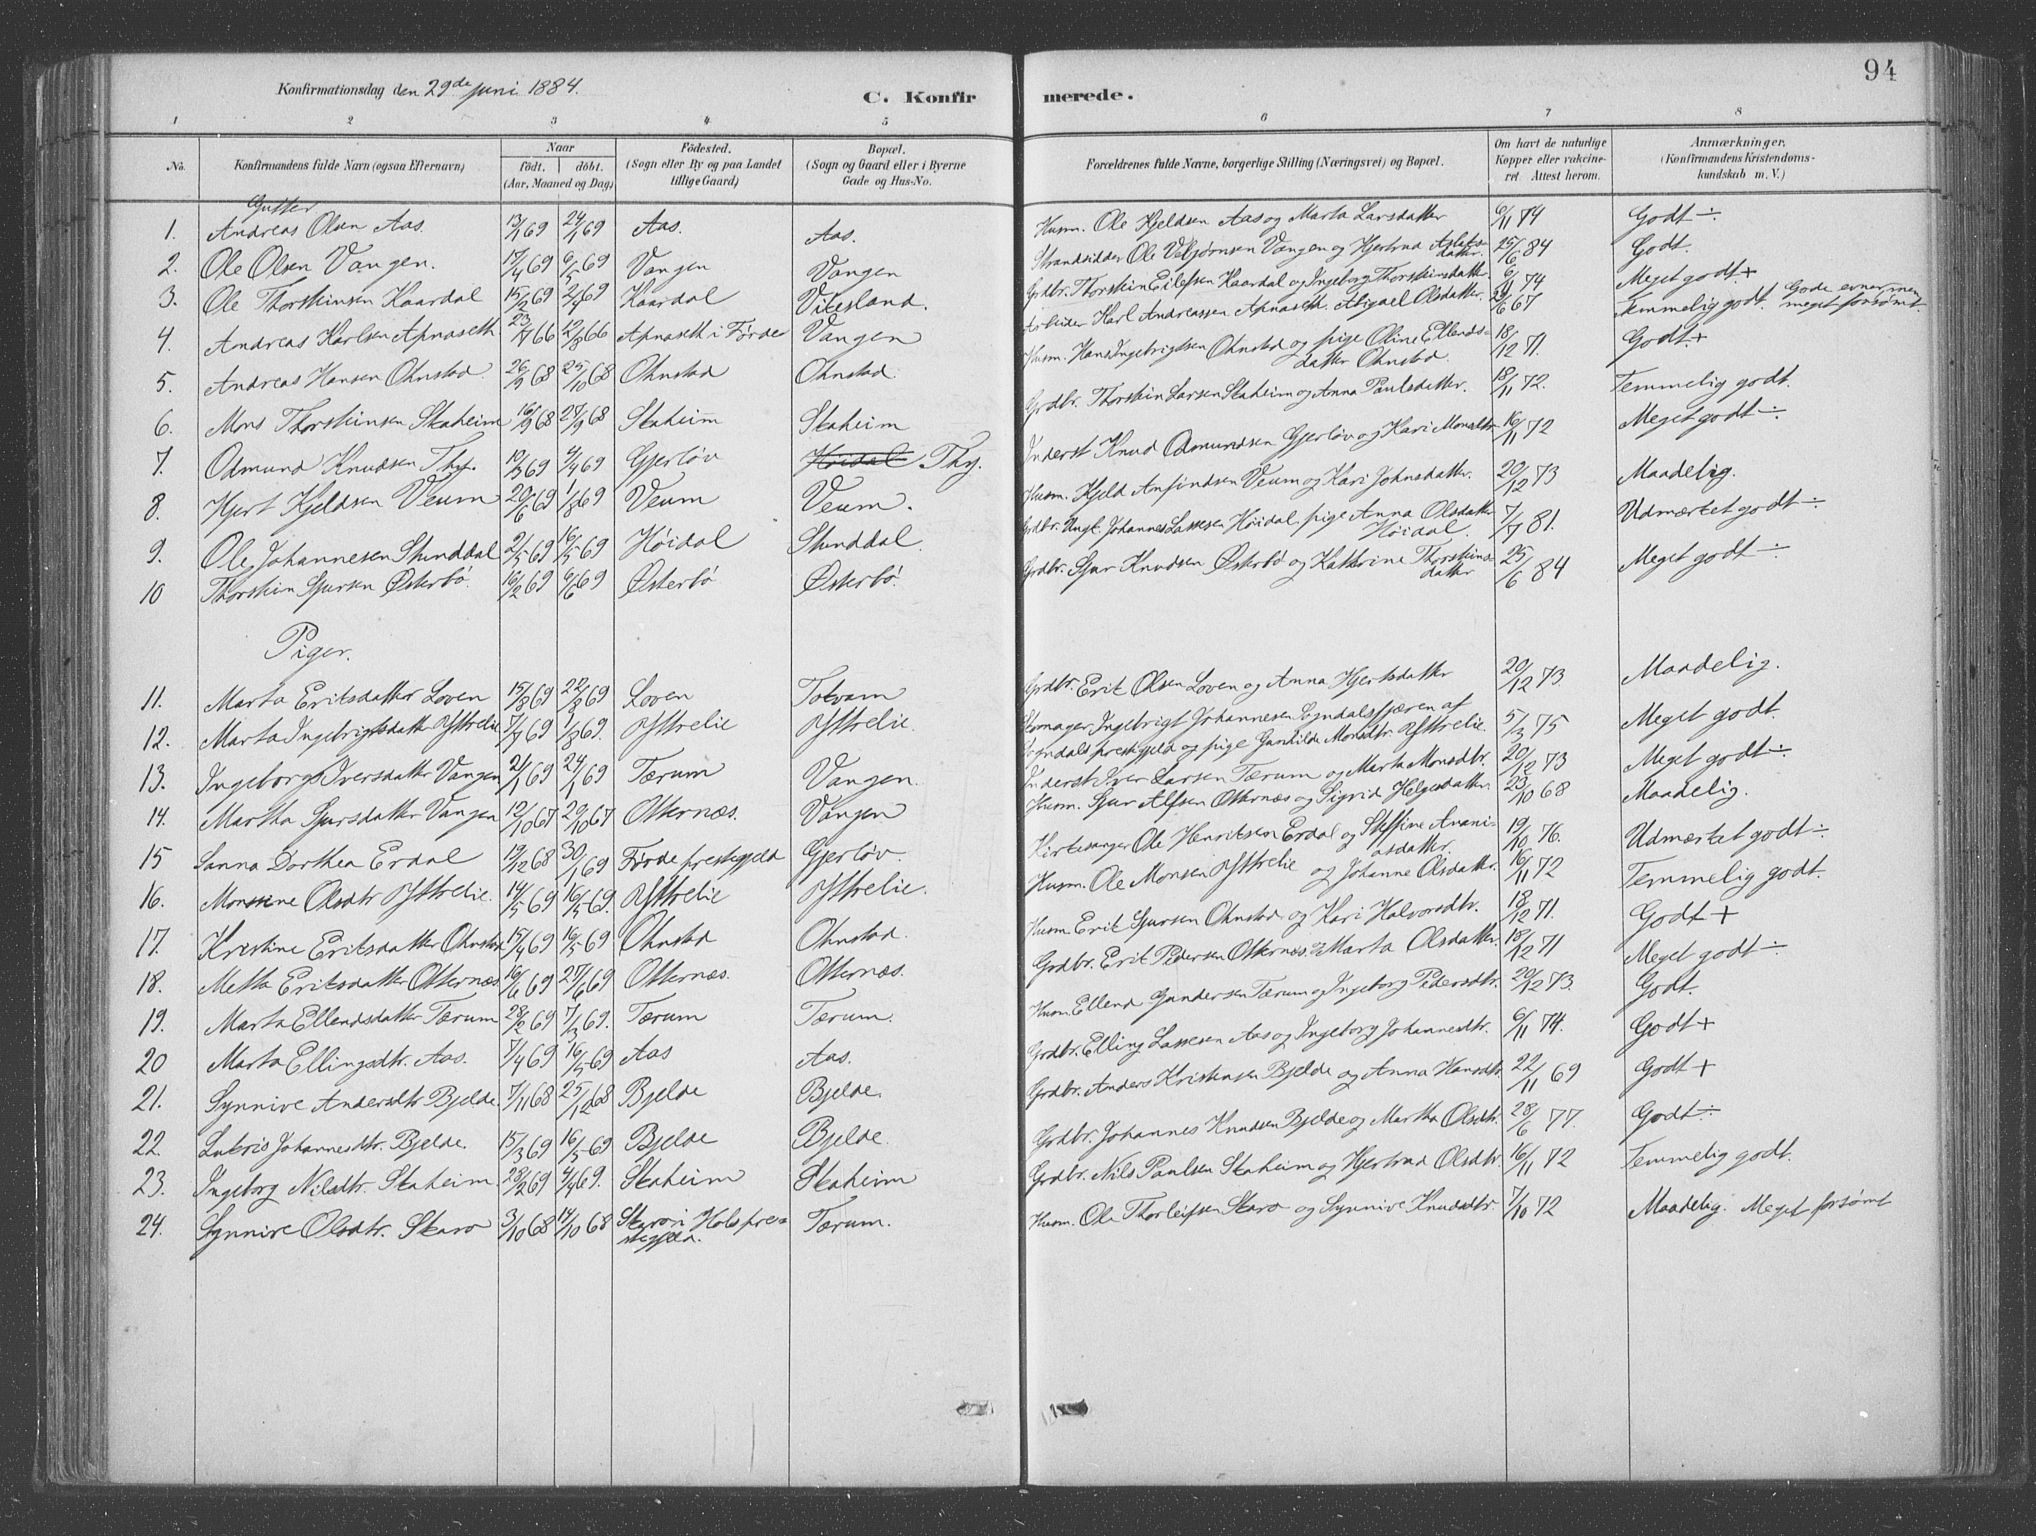 94
Konfirmationsdag den 29de Juni 1884.
C. Konfirmerede.
1 2 3 4 5 6 7 8
No. | Konfirmandens fulde Navn (ogsaa Efternavn) | Naar födt. döbt. (Aar, Maaned og Dag) | Födested. (Sogn eller By og paa Landet tillige Gaard) | Bopæl. (Sogn og Gaard eller i Byerne Gade og Hus-No. | Forældrenes fulde Navne, borgerlige Stilling (Næringsvei) og Bopæl. | Om havt de naturlige Kopper eller vakcineret. Attest herom. | Anmærkninger. (Konfirmandens Kristendomskundskab m. V.)
Gutter
1. Andreas Olsen Aas. 13/1 69 24/1 69 Aas. Aas. Husm. Ole Kjeldsen Aas og Marta Larsdatter 6/11 74 Godt ÷
2. Ole Olsen Vangen. 17/4 69 6/5 69 Vangen Vangen Strandsidder Ole Vebjørnsen Vangen og Hjertrud Aslaksdatter. 25/6 84 Godt.
3. Ole Thorstinsen Kaardal 15/2 69 2/4 69 Kaardal Vitesland. Grdbr. Thorstin Eilefsen Kaardal og Ingeborg Thorstinsdatter. 6/11 74 Meget godt +
4. Andreas Karlsen Apnaseth. 23/7 66 12/8 66 Apnaseth i Førde Vangen Arbeider Karl Andreassen Apnaseth. Abigael Olsdatter. 29/6 67 Temmelig godt. Gode evner men meget forsømt.
5. Andreas Hansen Ohnstad. 26/9 68 25/10 68 Ohnstad Ohnstad. Husm. Hans Ingebrigtsen Ohnstad og pige Oline Ellendsdatter Ohnstad. 18/12 71. Godt +
6. Mons Thorstinsen Skaheim 16/9 68 27/9 68 Skaheim Skaheim Grdbr. Thorstin Larsen Skaheim og Anna Paulsdatter. 18/11 72. Temmelig godt.
7. Odmund Knudsen Thy. 10/3 69 4/4 69 Gjerløv Høidal Thy. Inderst Knud Odmundsen Gjerløv og Kari Monsdtr 16/11 72 Meget godt ÷
8. Hjert Kjeldsen Veum 20/6 69 1/8 69 Veum Veum. Husm. Kjeld Anfindsen Veum og Kari Johnsdatter. 20/12 73 Maadelig.
9. Ole Johannesen Stunddal 2/5 69 16/5 69 Høidal Stunddal. Grdbr. Ungk. Johannes Lassesen Høidal, pige Anna Olsdatter Høidal. 7/7 81. Udmærket godt ÷
10 Thorstin Sjursen Østerbø. 16/2 69 6/6 69 Østerbø Østerbø. Grdbr. Sjur Knudsen Østerbø og Kathrine Thorstinsdatter 25/6 84 Meget godt ÷
Piger.
11. Marta Eriksdatter Loven 15/8 69 22/8 69 Loven Totvam Grdbr. Erik Olsen Loven og Anna Hjertsdatter 20/12 73. Maadelig.
12. Marta Ingebrigtsdatter Ysttrelie 7/7 69 1/8 69. Ysttrelie Ysttrelie. Skomager Ingebrigt Johannesen Sogndalsfjæren af Sogndals prestegjeld og pige Gunhilde Monsdtr. Ysttrelie. 5/3 75 Meget godt.
13. Ingeborg Iversdatter Vangen 2/1 69 24/1 69 Tærum Vangen. Inderst Iver Larsen Tærum og Marta Monsdtr. 20/12 73 Meget godt ÷
14. Martha Sjursdatter Vangen 12/10 67 20/10 67 Otternæs. Vangen Husm. Sjur Alfsen Otternæs og Sigrid Helgesdatter. 23/10 68 Maadelig.
15 Sanna Dorthea Erdal 19/12 68 30/1 69 Førde prestegjeld Gjerløv. Kirkesanger Ole Henriksen Erdal og Steffine Ananiasdatter. 19/10 76. Udmærket godt ÷
16. Monsine Olsdtr Ysttrelie. 14/5 69 16/5 69. Ysttrelie Ysttrelie. Husm. Ole Monsen Ysttrelie og Johanne Olsdatter. 16/11 72 Temmelig godt.
17. Kristine Eriksdatter Ohnstad 15/4 69 16/5 69. Ohnstad Ohnstad. Husm. Erik Sjursen Ohnstad og Kari Halvorsdtr. 18/12 71. Godt +
18. Metta Eriksdatter Otternæs. 16/6 69 27/6 69 Otternæs. Otternæs. Grdbr. Erik Pedersen Otternæs. og Marta Olsdatter. 18/12 71 Meget godt ÷
19. Marta Ellendsdatter Tærum 28/2 69 7/3 69. Tærum Tærum. Husm. Ellend Gundersen Tærum og Ingeborg Pedersdtr. 20/12 73. Godt.
20 Marta Ellingsdtr. Aas. 7/4 69 16/5 69 Aas Aas. Grdbr. Elling Lassesen Aas og Ingeborg Johannesdtr. 6/11 74. Godt +
21. Synnive Andersdtr Bjelde. 7/11 68 25/12 68 Bjelde Bjelde. Grdbr. Anders Kristensen Bjelde og Anna Hansdtr. 22/11 69 Godt +
22. Lukris Johannesdtr. Bjelde. 15/3 69 16/5 69 Bjelde Bjelde. Grdbr. Johannes Knudsen Bjelde og Martha Olsdtr. 28/6 77. Godt ÷
23. Ingeborg Nilsdtr. Skaheim. 28/2 69 4/4 69. Skaheim Skaheim Grdbr. Nils Paulsen Skaheim og Hjertrud Olsdtr. 16/11 72 Temmelig godt.
24. Synnive Olsdtr. Skaro 3/10 68 14/10 68 Skaro i Hols prestegjeld. Tærum. Husm. Ole Thorleifsen Skaro og Synnive Knudsdtr. 7/10 72 Maadelig. Meget forsømt